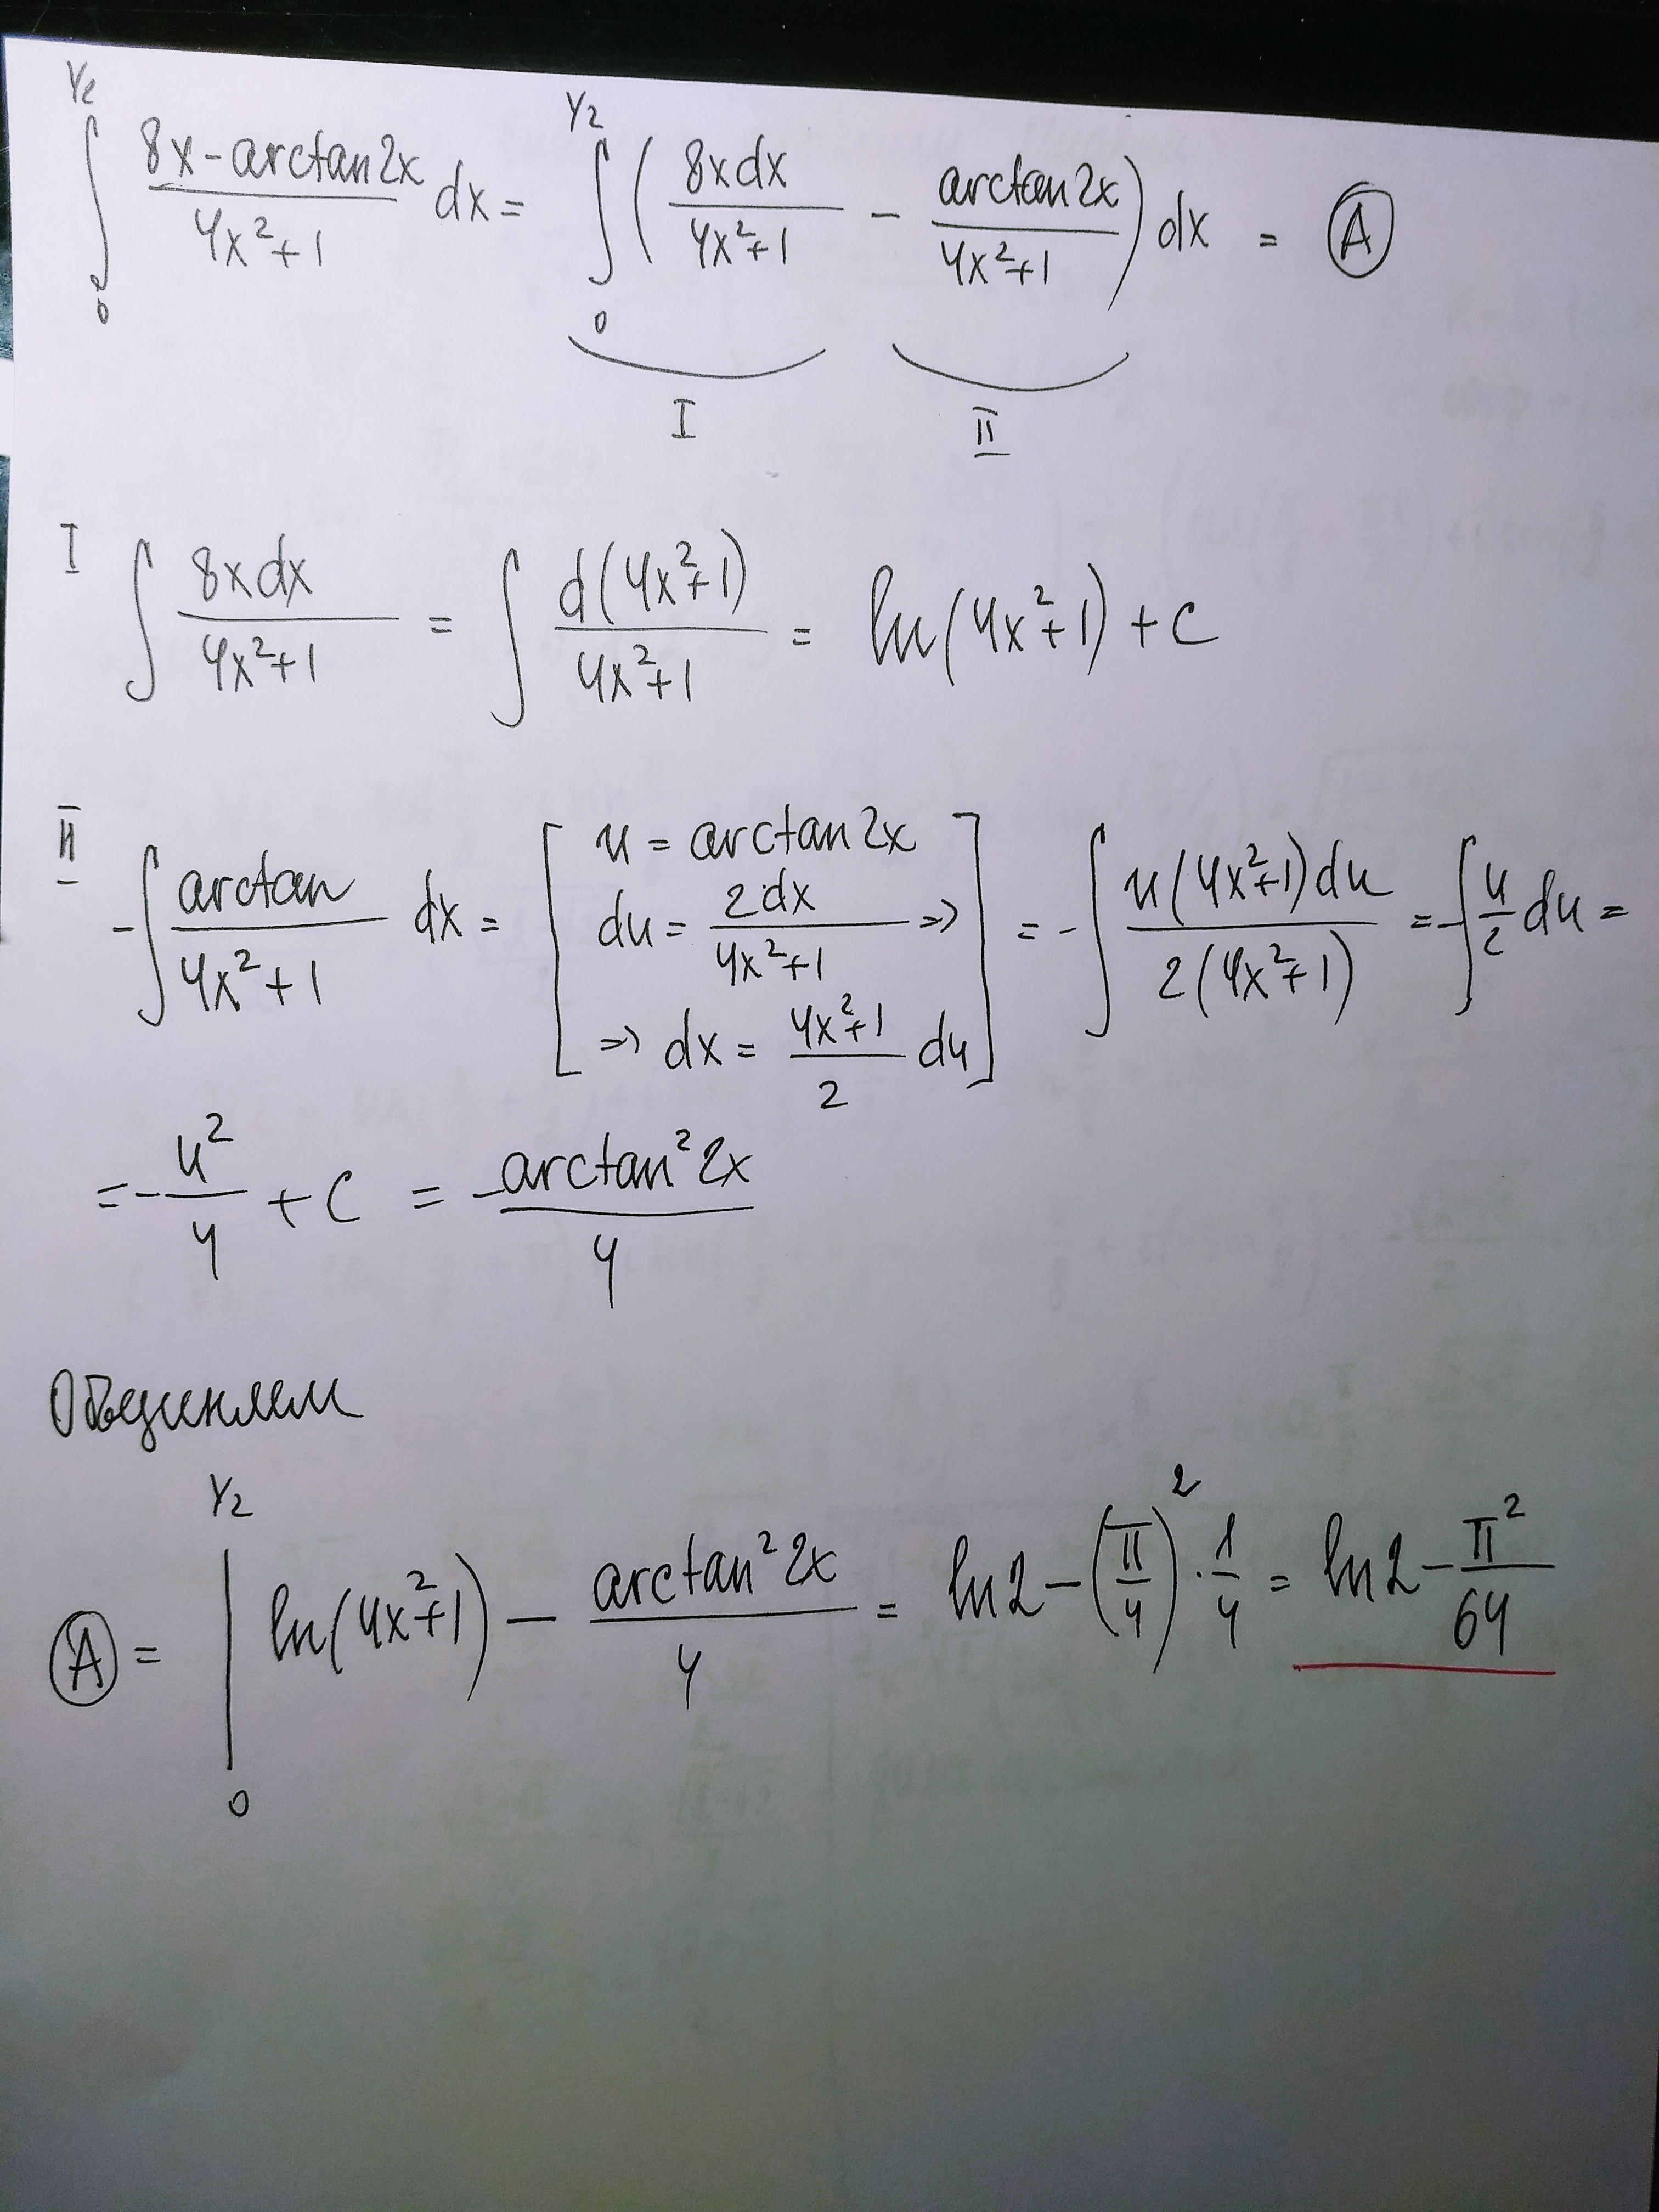 ∫₀^{1/2} (8x - arctan2x)/(4x²+1) dx = ∫₀^{1/2} (8xdx/(4x²+1) - arctan2x/(4x²+1)) dx = Ⓐ
I II
I ∫ 8xdx/(4x²+1) = ∫ d(4x²+1)/(4x²+1) = ln(4x²+1) + C
II -∫ arctan/(4x²+1) dx = [u = arctan2x
du = 2dx/(4x²+1) =>
=> dx = (4x²+1)/2 du] = -∫ u(4x²+1)du/(2(4x²+1)) = -∫ u/2 du =
= -u²/4 + C = -arctan²2x/4
Объединяем
Ⓐ = |₀^{1/2} ln(4x²+1) - arctan²2x/4 = ln2 - (π/4)² · 1/4 = ln2 - π²/64